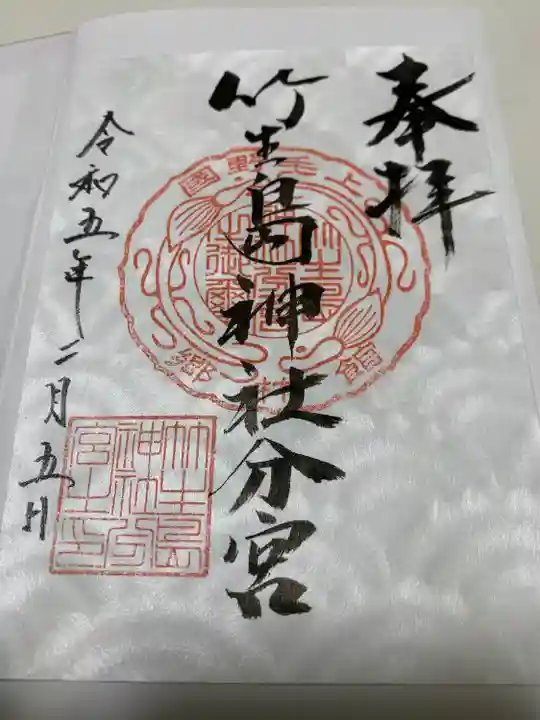 奉拝
竹生島神社分宮
令和五年二月五日
上毛野國
館村郷
竹生島神社分宮之印